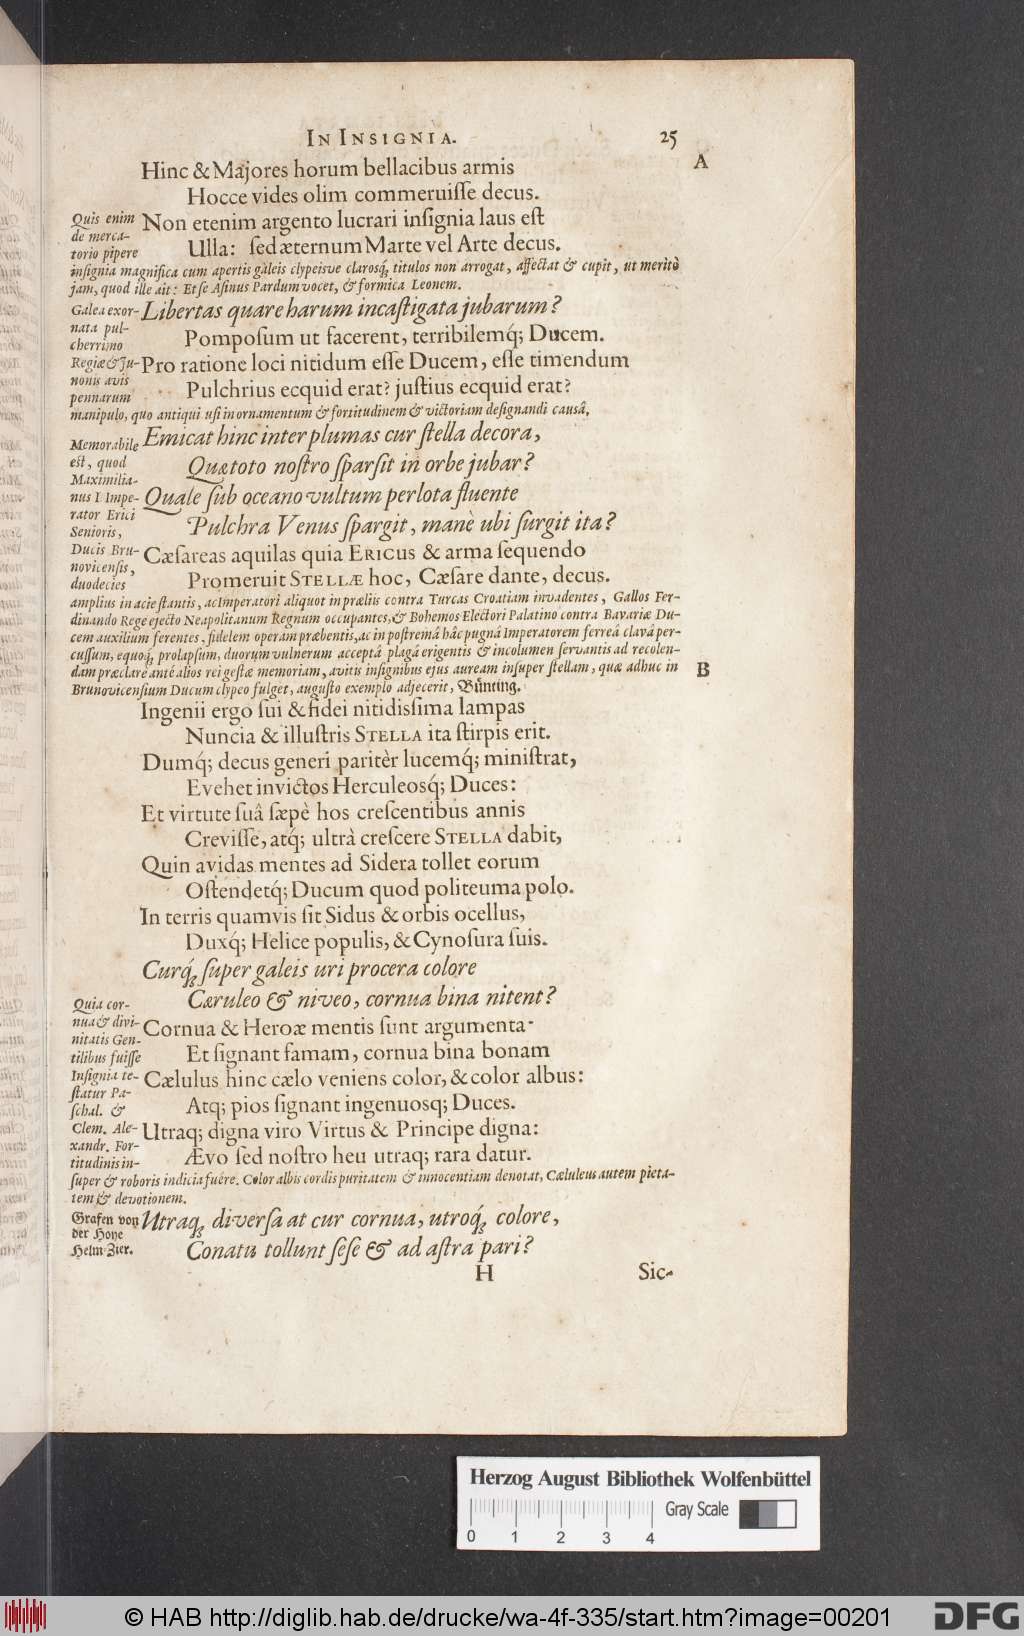 IN INSIGNIA. 25
A
Hinc & Majores horum bellacibus armis
Hocce vides olim commeruiſſe decus.
Non etenim argento lucrari inſignia laus eſt
Ulla: ſed æternum Marte vel Arte decus.
Quis enim
de merca-
torio pipere
inſignia magnifica cum apertis galeis clypeisve clarosq́; titulos non arrogat, affectat & cupit, ut meritò
jam, quod ille ait: Et ſe Aſinus Pardum vocet, & formica Leonem.
Libertas quare harum incaſtigata jubarum?
Pompoſum ut facerent, terribilemq́; Ducem.
Pro ratione loci nitidum eſſe Ducem, eſſe timendum
Pulchrius ecquid erat? juſtius ecquid erat?
Galea exor-
nata pul-
cherrimo
Regiæ & Ju-
nonis avis
pennarum
manipulo, quo antiqui uſi in ornamentum & fortitudinem & victoriam deſignandi causâ,
Emicat hinc inter plumas cur ſtella decora,
Quæ toto noſtro ſparſit in orbe jubar?
Quale ſub oceano vultum perlota fluente
Pulchra Venus ſpargit, manè ubi ſurgit ita?
Cæſareas aquilas quia ERICUS & arma ſequendo
Promeruit STELLÆ hoc, Cæſare dante, decus.
Memorabile
eſt, quod
Maximilia-
nus I Impe-
rator Erici
Senioris,
Ducis Bru-
novicenſis,
duodecies
amplius in acie ſtantis, ac Imperatori aliquot in prœliis contra Turcas Croatiam invadentes, Gallos Fer-
dinando Rege ejecto Neapolitanum Regnum occupantes, & Bohemos Electori Palatino contra Bavariæ Du-
cem auxilium ferentes, fidelem operam præbentis, ac in poſtremâ hâc pugnâ Imperatorem ferreâ clavâ per-
cuſſum, equoq́; prolapſum, duorum vulnerum acceptâ plagâ erigentis & incolumen ſervantis ad recolen-
dam præclarè antè alios rei geſtæ memoriam, avitis inſignibus ejus auream inſuper ſtellam, quæ adhuc in
Brunovicenſium Ducum clypeo fulget, auguſto exemplo adjecerit, Bünting.
B
Ingenii ergo ſui & fidei nitidisſima lampas
Nuncia & illuſtris STELLA ita ſtirpis erit.
Dumq́; decus generi paritèr lucemq́; miniſtrat,
Evehet invictos Herculeosq́; Duces:
Et virtute ſuâ ſæpè hos creſcentibus annis
Creviſſe, atq́; ultrà creſcere STELLA dabit,
Quin avidas mentes ad Sidera tollet eorum
Oſtendetq́; Ducum quod politeuma polo.
In terris quamvis ſit Sidus & orbis ocellus,
Duxq́; Helice populis, & Cynoſura ſuis.
Curq́; ſuper galeis uri procera colore
Cæruleo & niveo, cornua bina nitent?
Cornua & Heroæ mentis ſunt argumenta
Et ſignant famam, cornua bina bonam
Cælulus hinc cælo veniens color, & color albus:
Atq; pios ſignant ingenuosq; Duces.
Utraq; digna viro Virtus & Principe digna:
Ævo ſed noſtro heu utraq; rara datur.
Quia cor-
nua & divi-
nitatis Gen-
tilibus fuiſſe
Inſignia te-
ſtatur Pa-
ſchal. &
Clem. Ale-
xandr. For-
titudinis in-
ſuper & roboris indicia fuêre. Color albis cordis puritatem & innocentiam denotat, Cæluleus autem pieta-
tem & devotionem.
Utraq́; diverſa at cur cornua, utroq́; colore,
Conatu tollunt ſeſe & ad aſtra pari?
Grafen von
der Hoye
Helm-Zier.
H Sic
Herzog August Bibliothek Wolfenbüttel
Gray Scale
0 1 2 3 4
© HAB http://diglib.hab.de/drucke/wa-4f-335/start.htm?image=00201
DFG